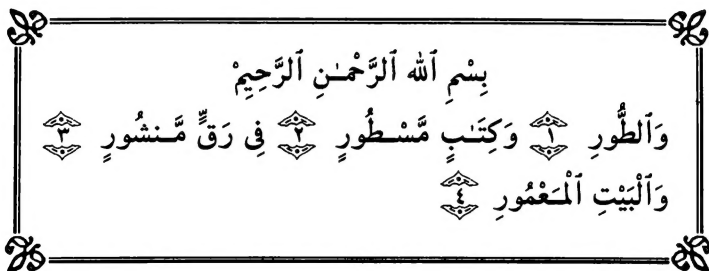 بِسْمِ ٱللهِ ٱلرَّحْمَـٰنِ ٱلرَّحِيمْ
وَٱلطُّورِ ١ وَكِتَـٰبٍ مَّسْـطُورٍ ٢ فِى رَقٍّ مَّـنشُورٍ ٣
وَٱلْبَيْتِ ٱلْمَـعْمُورِ ٤